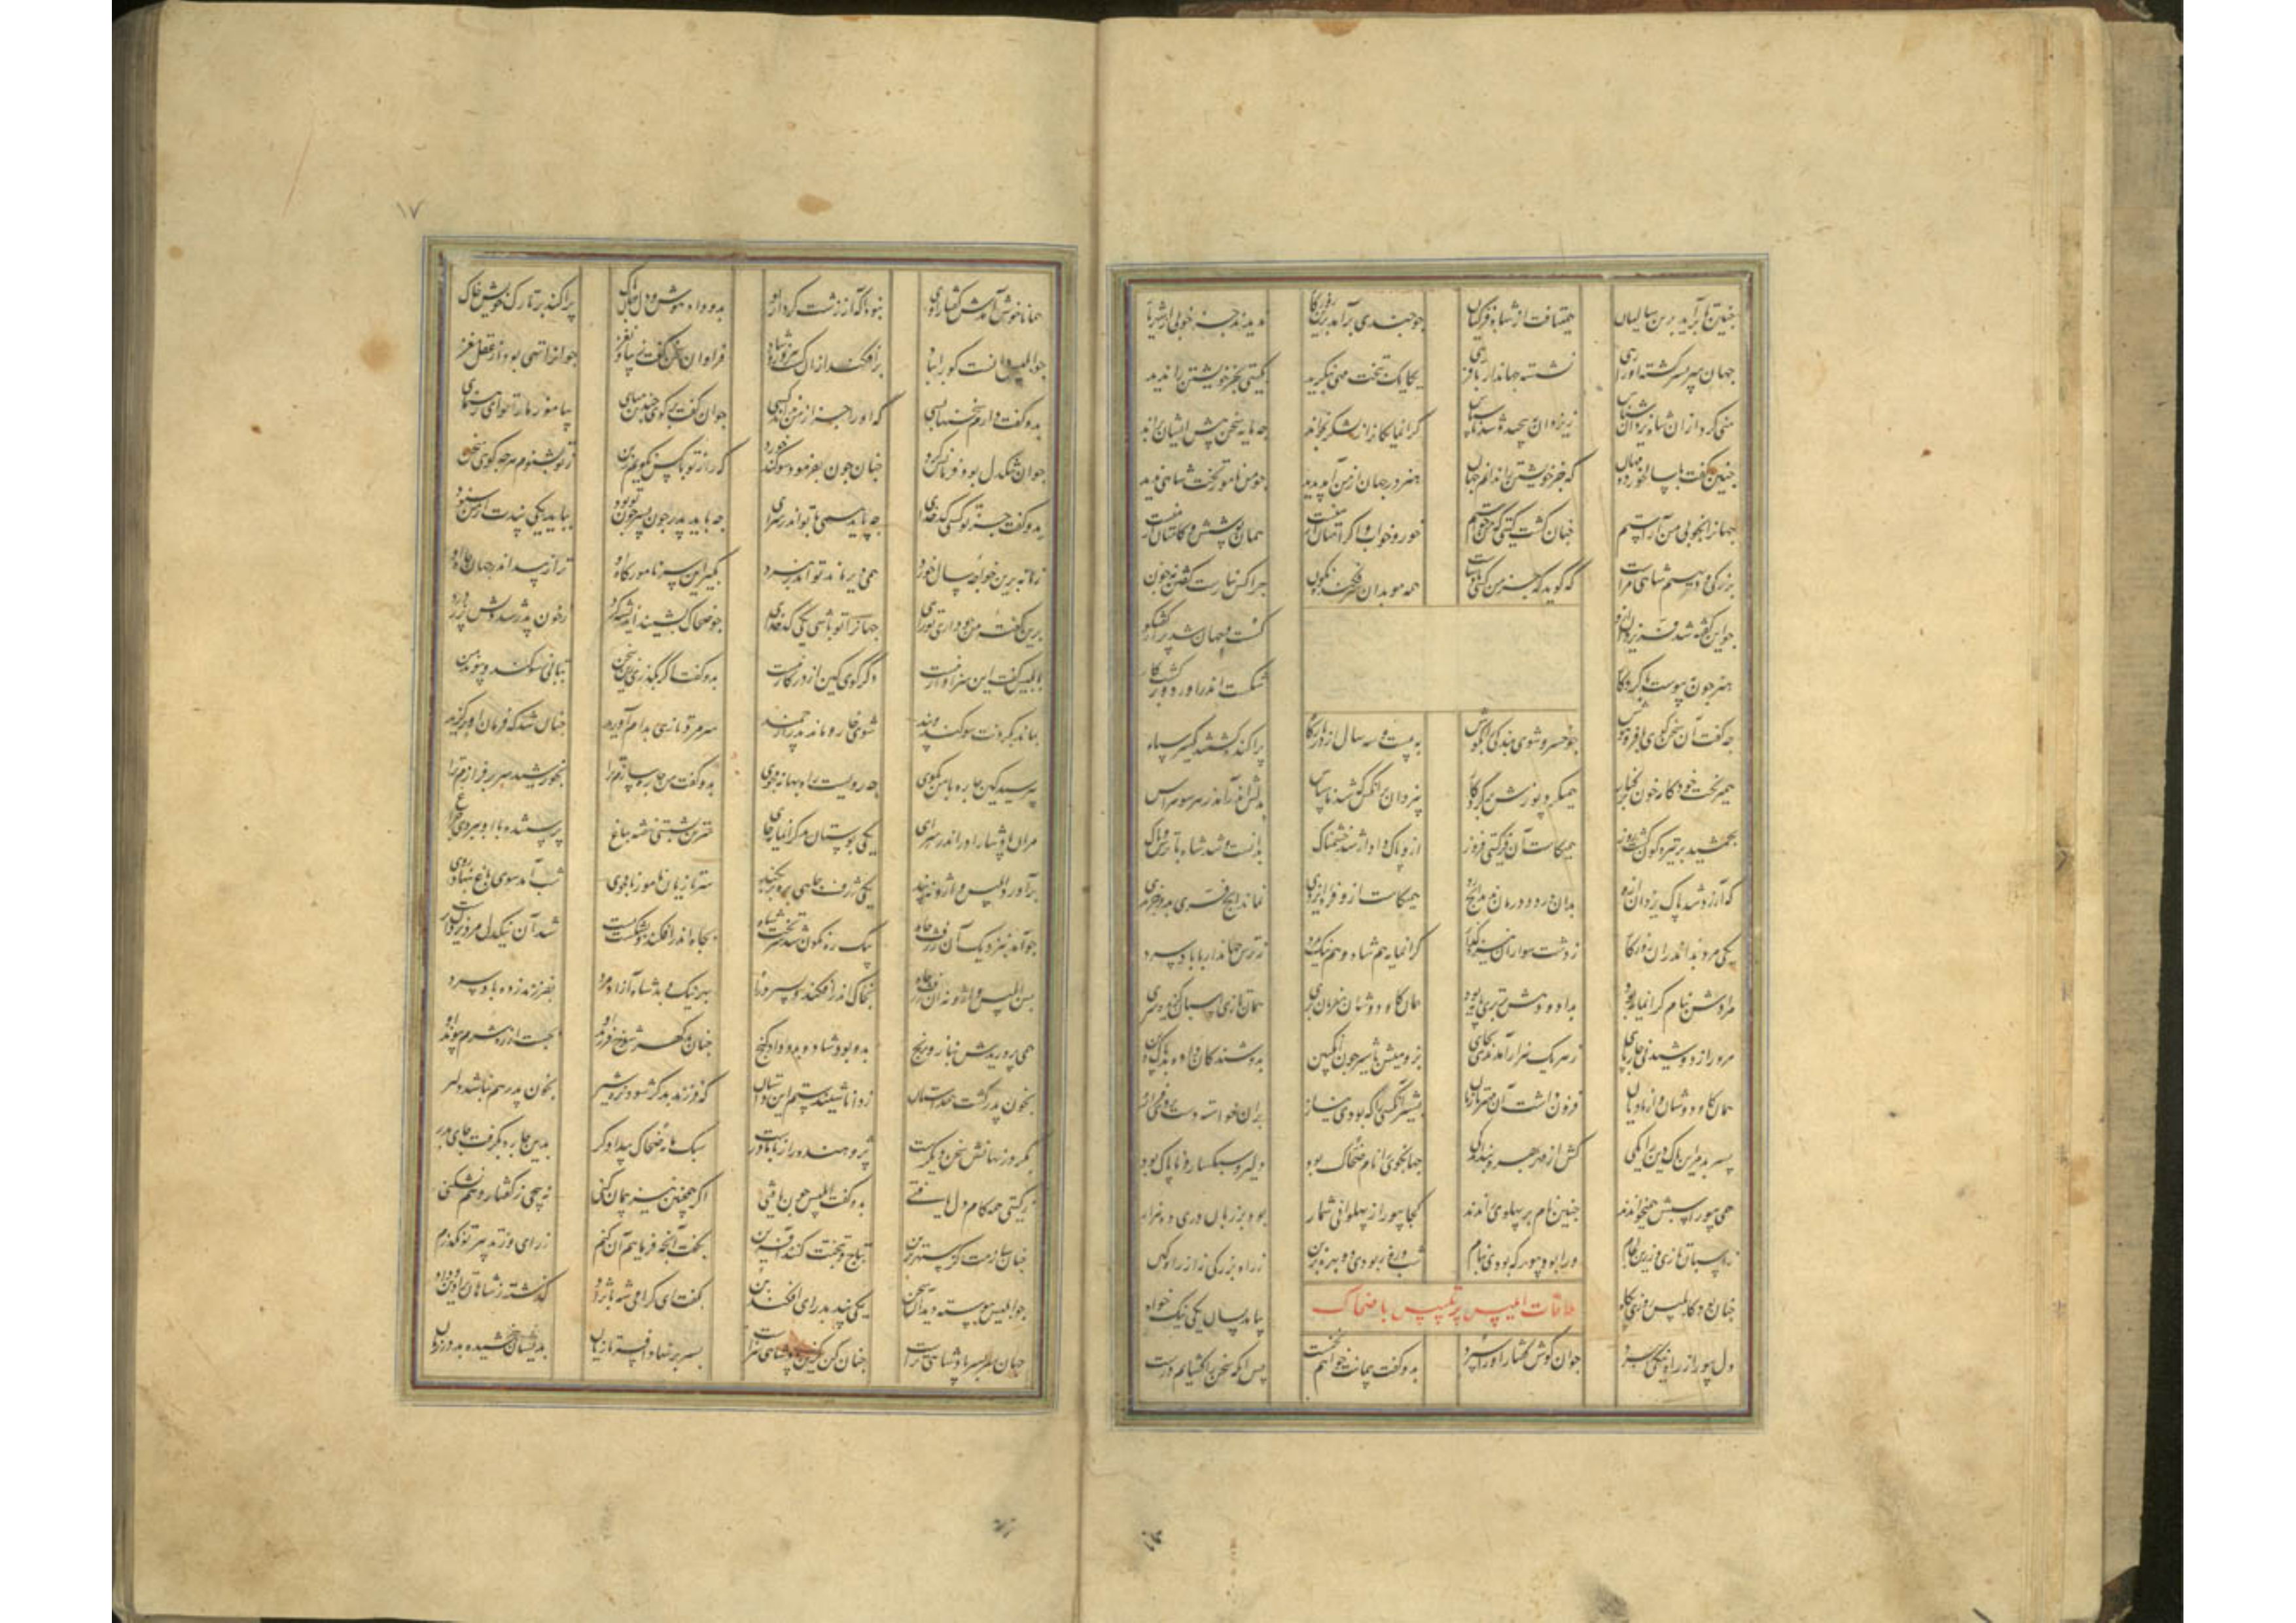 چنین تا برآمد برین سالیان همیتافت از شاه فر کیان چو چندی برآمد برین روزگار ندیدند جز خوبی از شهریار
جهان سربسر گشته او را رهی نشسته جهاندار با فرهی یکایک بتخت مهی بنگرید بگیتی بجز خویشتن را ندید
منی کرد از ان شاه یزدان شناس ز یزدان بپیچید و شد ناسپاس گرانمایگانرا ز لشکر بخواند چه مایه سخن پیش ایشان براند
چنین گفت با سالخورده مهان که جز خویشتن را ندانم جهان هنر در جهان از من آمد پدید چو من نامور تخت شاهی ندید
جهانرا بخوبی من آراستم چنان گشت گیتی که من خواستم خور و خواب و آرامتان از منست همان پوشش و کامتان از منست
بزرگی و دیهیم شاهی مراست که گوید که جز من کسی پادشاست همه موبدان سرفکنده نگون چرا کس نیارست گفتن نه چون
چو این گفته شد فر یزدان ازو گسست و جهان شد پر از گفتگو
هنر چون بپیوست با کردگار شکست اندر آورد و برگشت کار
چه گفت آن سخن گوی با فر و هوش چو خسرو شوی بندگی را بکوش به بیست و سه سال از در بارگاه پراکنده گشتند یکسر سپاه
همیریخت خون در کنار همیکرد پوزش بر کردگار بیزدان هر آنکس که شد ناسپاس بدلش اندر آید ز هر سو هراس
بجمشید بر تیره گون گشت روز همیکاست آن فر گیتی فروز ازو پاک دادار شد خشمناک بدانست و شد شاه با ترس و باک
که آزرده شد پاک یزدان ازو بدان درد درمان ندید ایچ رو همیکاست ازو فره ایزدی
یکی مرد بد اندران روزگار ز دشت سواران نیزه گذار گرانمایه هم شاه و هم نیک مرد ز ترس جهاندار با باد سرد
مرداس نام گرانمایه بود بداد و دهش برترین پایه بود همان گاو دوشان بفرمان بری همان تازی اسپان
مر او را ز دوشیدنی چارپای ز هر یک هزار آمدندی بجای بز و میش بدوشندگان داده بد پاک دین
همان گاو دوشان بشیر آنکسی را که بودی نیاز بدان خواسته دست بردی فراز
پسر بد مر این پاک دین را یکی کش از مهر بهره نبد اندکی جهانجوی را نام ضحاک بود دلیر و سبکسار و ناپاک بود
همی بیوراسپش همیخواندند چنین نام بر پهلوی راندند کجا بیور از پهلوانی شمار بود بر زبان دری ده هزار
ز اسپان تازی بزرین لگام ورا بود بیور که بودی بنام شب و روز بودی دو بهره بزین ز راه بزرگی نه از راه کین
چنان بد که ابلیس روزی پگاه بیامد بسان یکی نیک خواه
ملاقات ابلیس پر تلبیس با ضحاک
دل پور از راه نیکی ببرد جوان گوش گفتار او را سپرد بدو گفت پیمانت خواهم نخست پس آنگه سخن برگشایم درست
۱۷
همانا خوش آمدش گفتار اوی نبود آگه از زشت کردار اوی بدو داد هوش و دل و جان پاک پراکند بر تارک خویش خاک
چو ابلیس دانست فراوان سخن گفت زیبا و نغز جوانرا تهی بود از عقل مغز
بدو گفت دارم سخنها بسی که او را جز از من نداند کسی جوان گفت برگوی چندین مپای بیاموز ما را تو ای رهنمای
جوان نیکدل بود و فرمانش کرد چنان چون بفرمود سوگند خورد که راز تو با کس نگویم ز بن ز تو بشنوم هر چه گوئی سخن
بدو گفت جز تو کسی کدخدای چه باید همی با تو اندر سرای چه باید پدر چون پسر چون تو بود بباید یکی پندت از من شنود
زمانه برین خواجه سال خورد همی دیر ماند تو اندر نورد بگیر این سر نامور گاه او ترا زیبد اندر جهان جاه او
برین گفته من چو داری جهانرا تو باشی یکی کدخدای چو ضحاک بشنید اندیشه کرد ز خون پدر شد دلش پر ز درد
بابلیس گفت این سزاوار نیست دگر گوی کین از در کار نیست بدو گفت اگر بگذری زین سخن بتابی ز سوگند و
بماند بگردنت سوگند و بند شوی خوار و ماند پدر ارجمند سر مرد تازی بدام آورید چنان شد که فرمان او برگزید
بپرسید کین چاره با من بگوی چه رویست راه بهانه مجوی بدو گفت من چاره سازم ترا بخورشید سر برفرازم ترا
مران پادشا را در اندر سرای یکی بوستان بد گرانمایه جای شستن شد بباغ پرستنده با او نبردی چراغ
برآورد ابلیس وارونه بند یکی ژرف چاهی بره بر بکند سر تازیان نامجوی شب آمد سوی باغ بنهاد روی
چو آمد بنزدیک آن ژرف چاه نگون شد سر تخت شاه بچاه اندر افکند و بشکست پست شد آن نیکدل مرد یزدان پرست
پس ابلیس وارونه آن ژرف چاه بخاک اندر افکند و بسپرد راه بهر نیک و بد شاه آزاد مرد بفرزند نازده باد سرد
همی پروریدش بناز و برنج بدو بود شاد و بدو داد گنج چنان بد گهر شوخ فرزند او بجست از ره شرم پیوند او
بخون پدر گشت همداستان ز دانا شنیدستم این داستان که فرزند بد گر شود نره شیر بخون پدر هم نباشد دلیر
مگر در نهانش سخن دیگرست پژوهنده را راز با مادرست سبک مایه ضحاک بیدادگر بدین چاره بگرفت جای پدر
ز گیتی همه کام دل یافتی بدو گفت ابلیس چون اگر همچنین نیز پیمان کنی نه پیچی ز گفتار و هم نشکنی
چنان سازمت بتاج و بتخت کنند آفرین بگفت آنچه فرمایم آن کنم ز رای
چو ابلیس پیوسته دید آن سخن یکی پند بد رای افکند بن بگفت ای گرامی گذشته ز شاهان
جهان سربسر پادشاهی تراست چنان کن بسر بر نهاد افسر تازیان بدیشان ببخشید سود و زیان